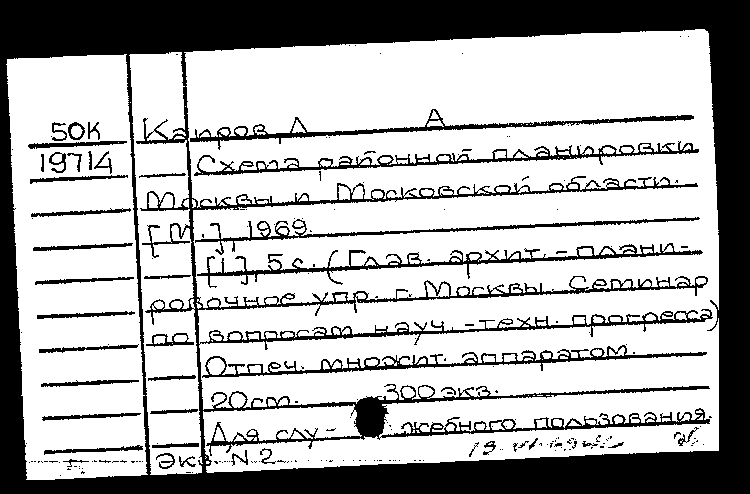 50К Капров, Л А
19714 Схема районной планировки
Москвы и Московской области.
[М.], 1969.
[1], 5 с. (Глав. архит.-плани-
ровочное упр. г. Москвы. Семинар
по вопросам науч.-техн. прогресса)
Отпеч. множит. аппаратом.
20 см. 300 экз.
Для слу- жебного пользования.
Экз. N 2